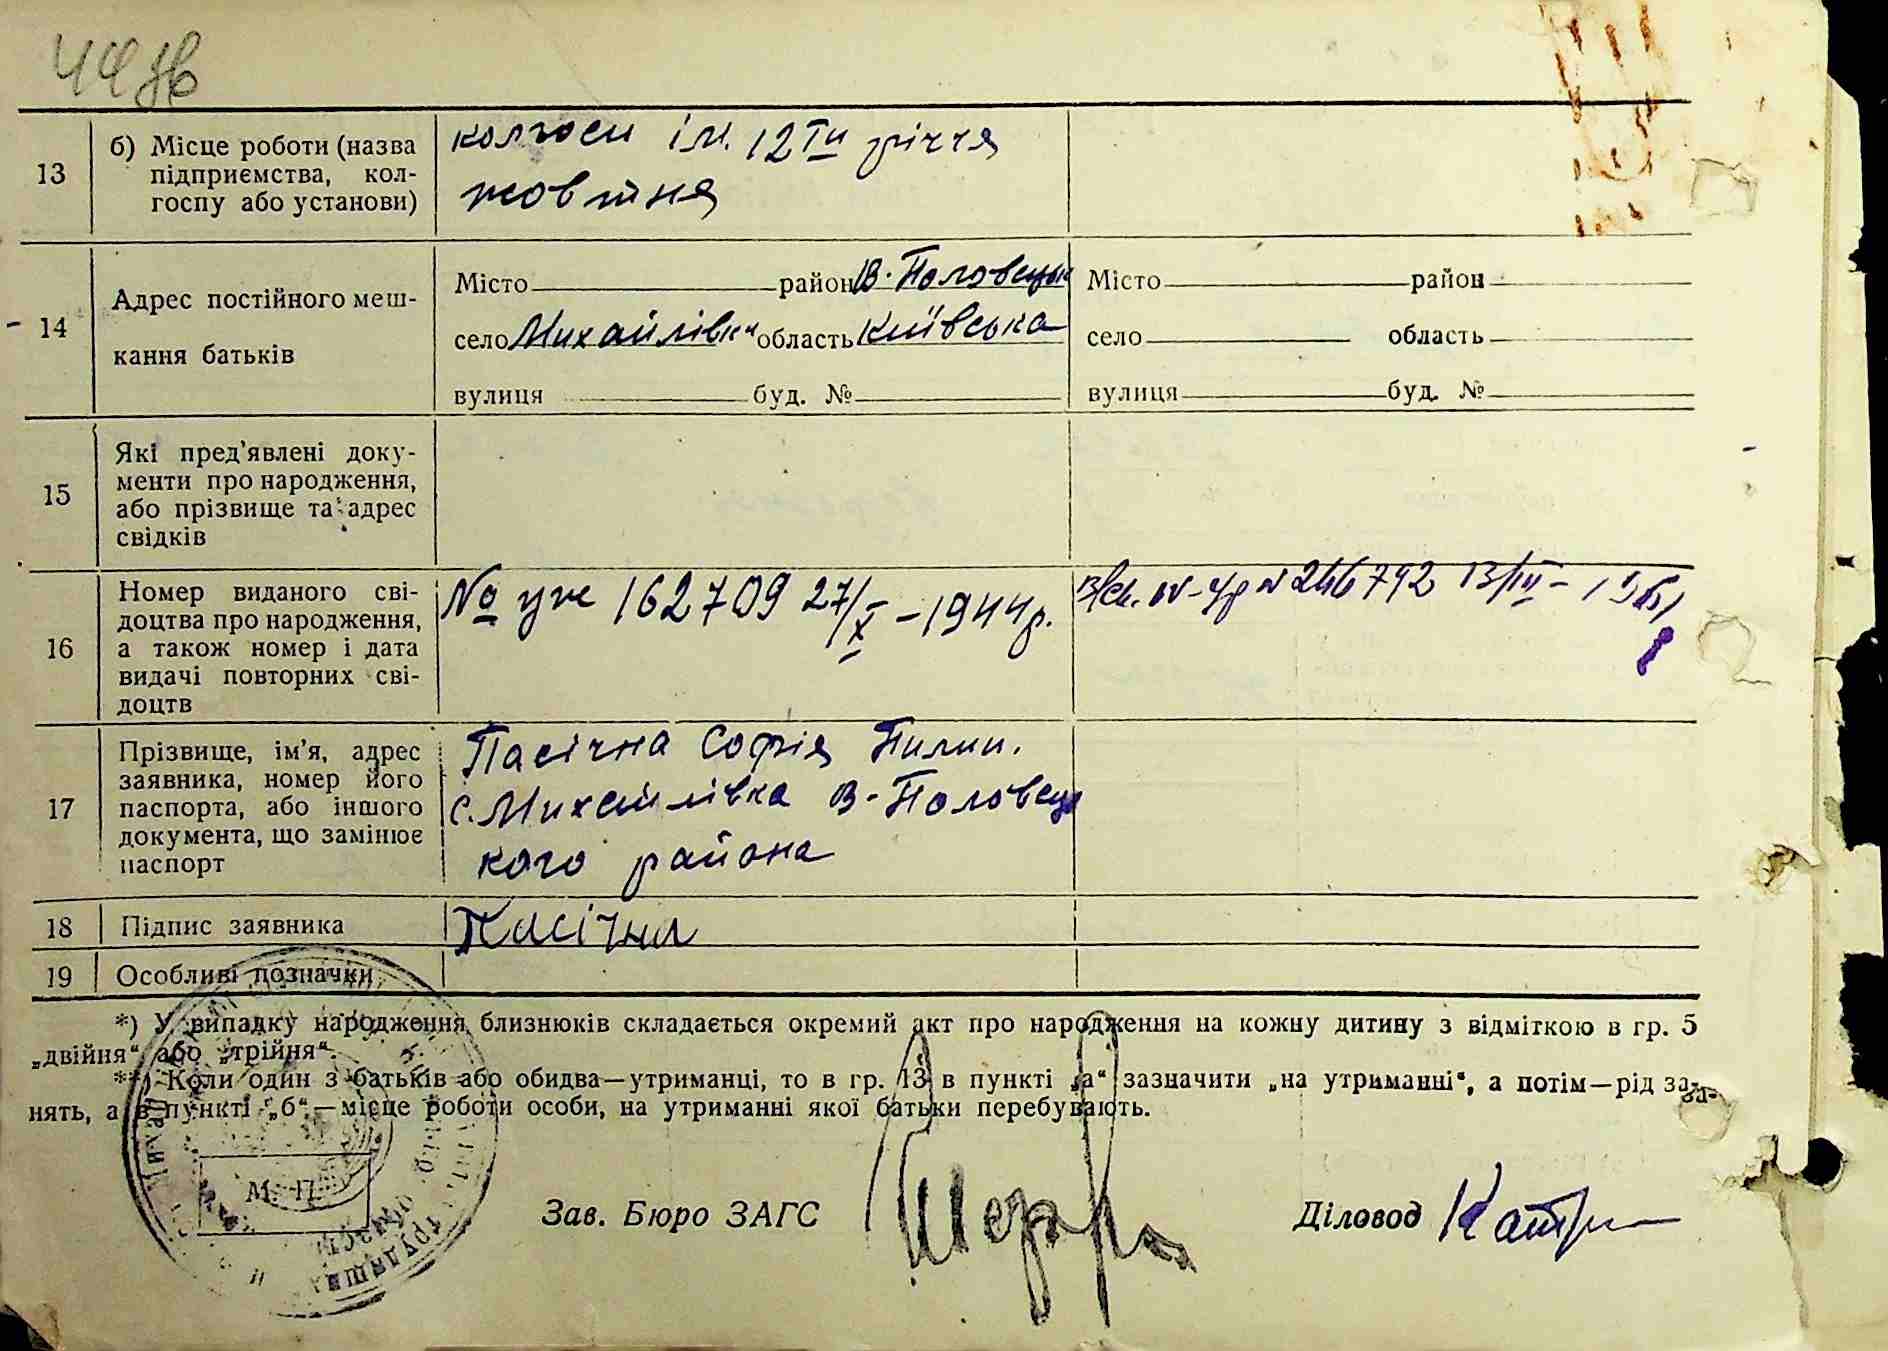 44 зв
13
б) Місце роботи (назва
підприємства, кол-
госпу або установи)
колгосп ім. 12ти річчя
жовтня
14
Адрес постійного меш-
кання батьків
Місто район В. Половецьк
село Михайлівка область Київська
вулиця буд. №
Місто район
село область
вулиця буд. №
15
Які пред'явлені доку-
менти про народження,
або прізвище та адрес
свідків
16
Номер виданого сві-
доцтва про народження,
а також номер і дата
видачі повторних сві-
доцтв
№ уж 162709 27/X – 1944р.
№ 246792 13/III –
17
Прізвище, ім'я, адрес
заявника, номер його
паспорта, або іншого
документа, що замінює
паспорт
Пасічна Софія Пилип.
с. Михайлівка В-Половець
кого района
18
Підпис заявника
Пасічна
19
Особливі позначки
*) У випадку народження близнюків складається окремий акт про народження на кожну дитину з відміткою в гр. 5
„двійня“ або „трійня“.
**) Коли один з батьків або обидва—утриманці, то в гр. 13 в пункті „а“ зазначити „на утриманні“, а потім—рід за-
нять, а в пункті „б“—місце роботи особи, на утриманні якої батьки перебувають.
М. П.
Зав. Бюро ЗАГС
Діловод